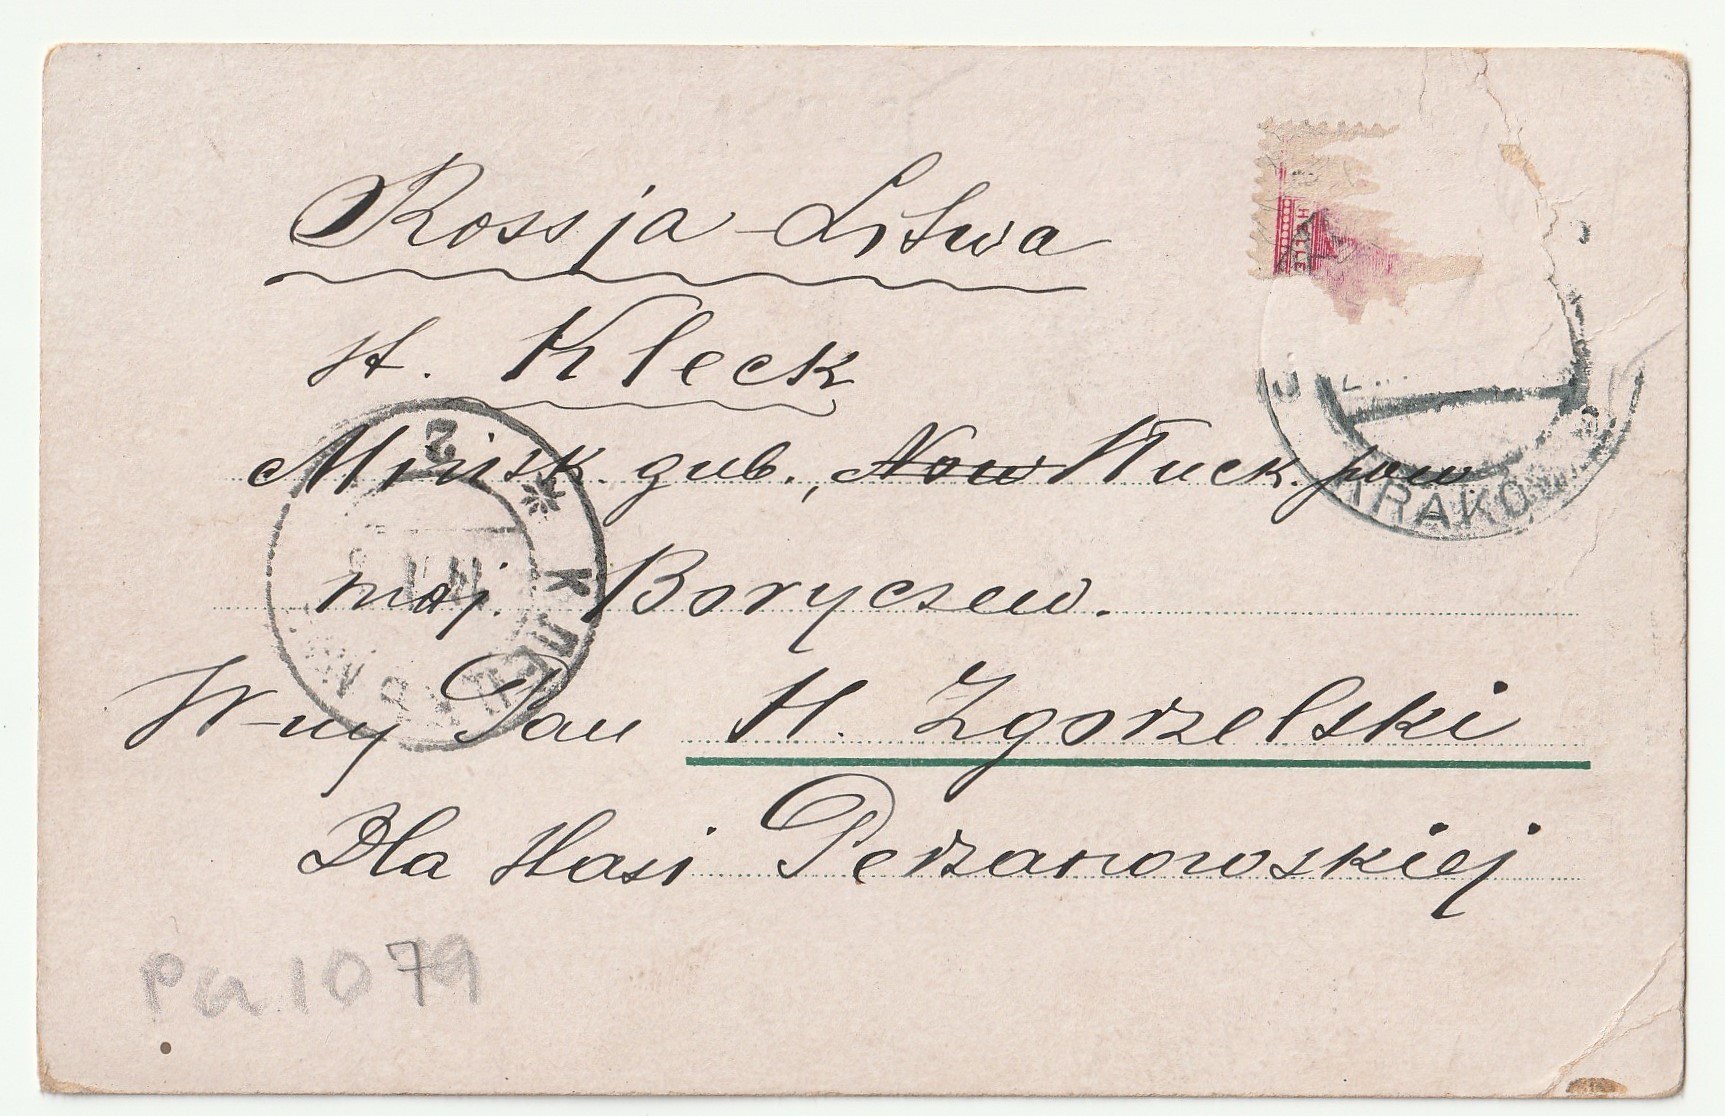 Rossja - Litwa
st. Kleck
Mińsk. gub., Now Słuck. pow
maj. Boryczew.
W-ny Pan H. Zgorzelski
Dla Hasi Perzanowskiej
KRAKÓ
2
* КЛЕЦК
HELLE
Pa 1079